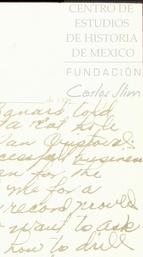 CENTRO DE
ESTUDIOS
DE HISTORIA
DE MEXICO
FUNDACIÓN
Carlos Slim
de 191
told
a rat hole
an
business
en for the
me for a
record
want to ask
how to drill